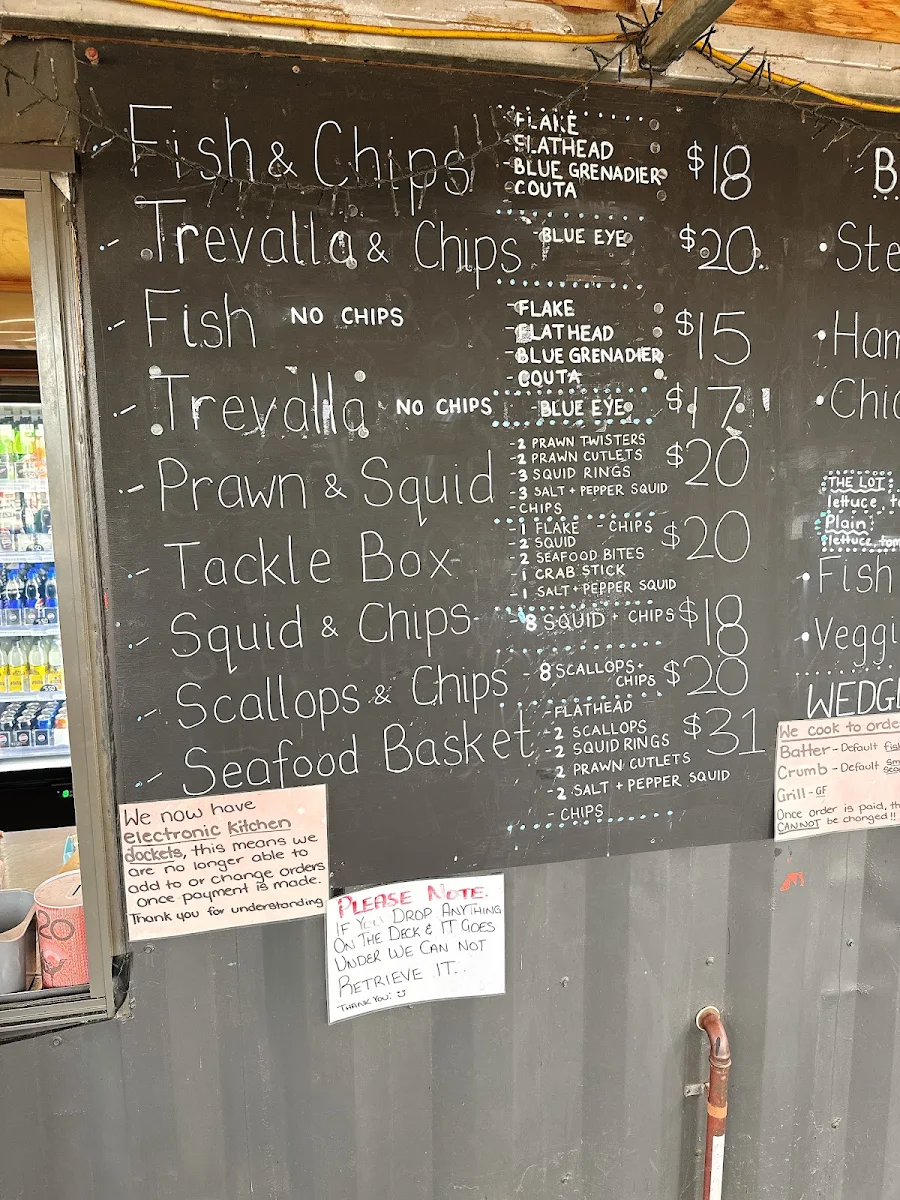 Fish & Chips
- FLAKE
- FLATHEAD
- BLUE GRENADIER
- COUTA
$18
Trevalla & Chips
- BLUE EYE
$20
Fish NO CHIPS
- FLAKE
- FLATHEAD
- BLUE GRENADIER
- COUTA
$15
Trevalla NO CHIPS
- BLUE EYE
$17
Prawn & Squid
- 2 PRAWN TWISTERS
- 2 PRAWN CUTLETS
- 3 SQUID RINGS
- 3 SALT + PEPPER SQUID
- CHIPS
$20
Tackle Box
- 1 FLAKE - CHIPS
- 2 SQUID
- 2 SEAFOOD BITES
- 1 CRAB STICK
- 1 SALT + PEPPER SQUID
$20
Squid & Chips
- 8 SQUID + CHIPS
$18
Scallops & Chips
- 8 SCALLOPS +
CHIPS
$20
Seafood Basket
- FLATHEAD
- 2 SCALLOPS
- 2 SQUID RINGS
- 2 PRAWN CUTLETS
- 2 SALT + PEPPER SQUID
- CHIPS
$31
B
• Ste
• Ham
• Chic
THE LOT:
lettuce, to
Plain:
lettuce, tom
• Fish
• Veggi
WEDG
We cook to orde
Batter - Default fish
Crumb - Default
Grill - GF
Once order is paid, th
CANNOT be changed!!
We now have
electronic kitchen
dockets, this means we
are no longer able to
add to or change orders
once payment is made.
Thank you for understanding
PLEASE NOTE.
IF YOU DROP ANYTHING
ON THE DECK & IT GOES
UNDER WE CAN NOT
RETRIEVE IT..
THANK YOU! :)
20